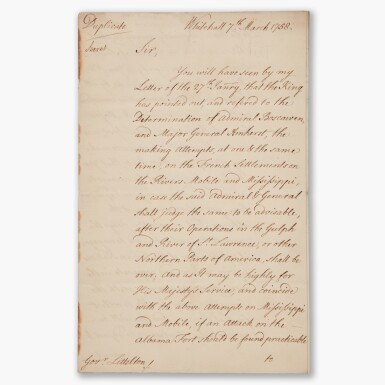 Duplicate Whitehall 7th March 1758.
Secret
Sir,
You will have seen by my
Letter of the 27th Janry, that the King
has pointed out and refered to the
Determination of Admiral Boscawen
and Major General Amherst, the
making Attempts, at one & the same
time, on the French Settlements on
the Rivers Mobile and Missisippi,
in case the said Admiral & General
shall judge the same to be adviseable,
after their Operations in the Gulph
and River of St. Lawrence, or other
Northern Parts of America, shall be
over, And as It may be highly for
His Majesty's Service, and coincide
with the above Attempts on Missisippi
and Mobile, if an Attack on the
Albama Fort should be found practicable
Govr. Littelton,
to